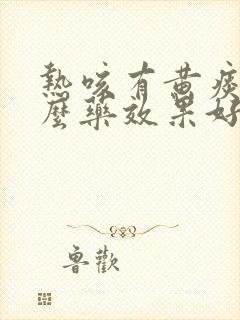 熱咳有黃痰
麼藥效果好
魯歡